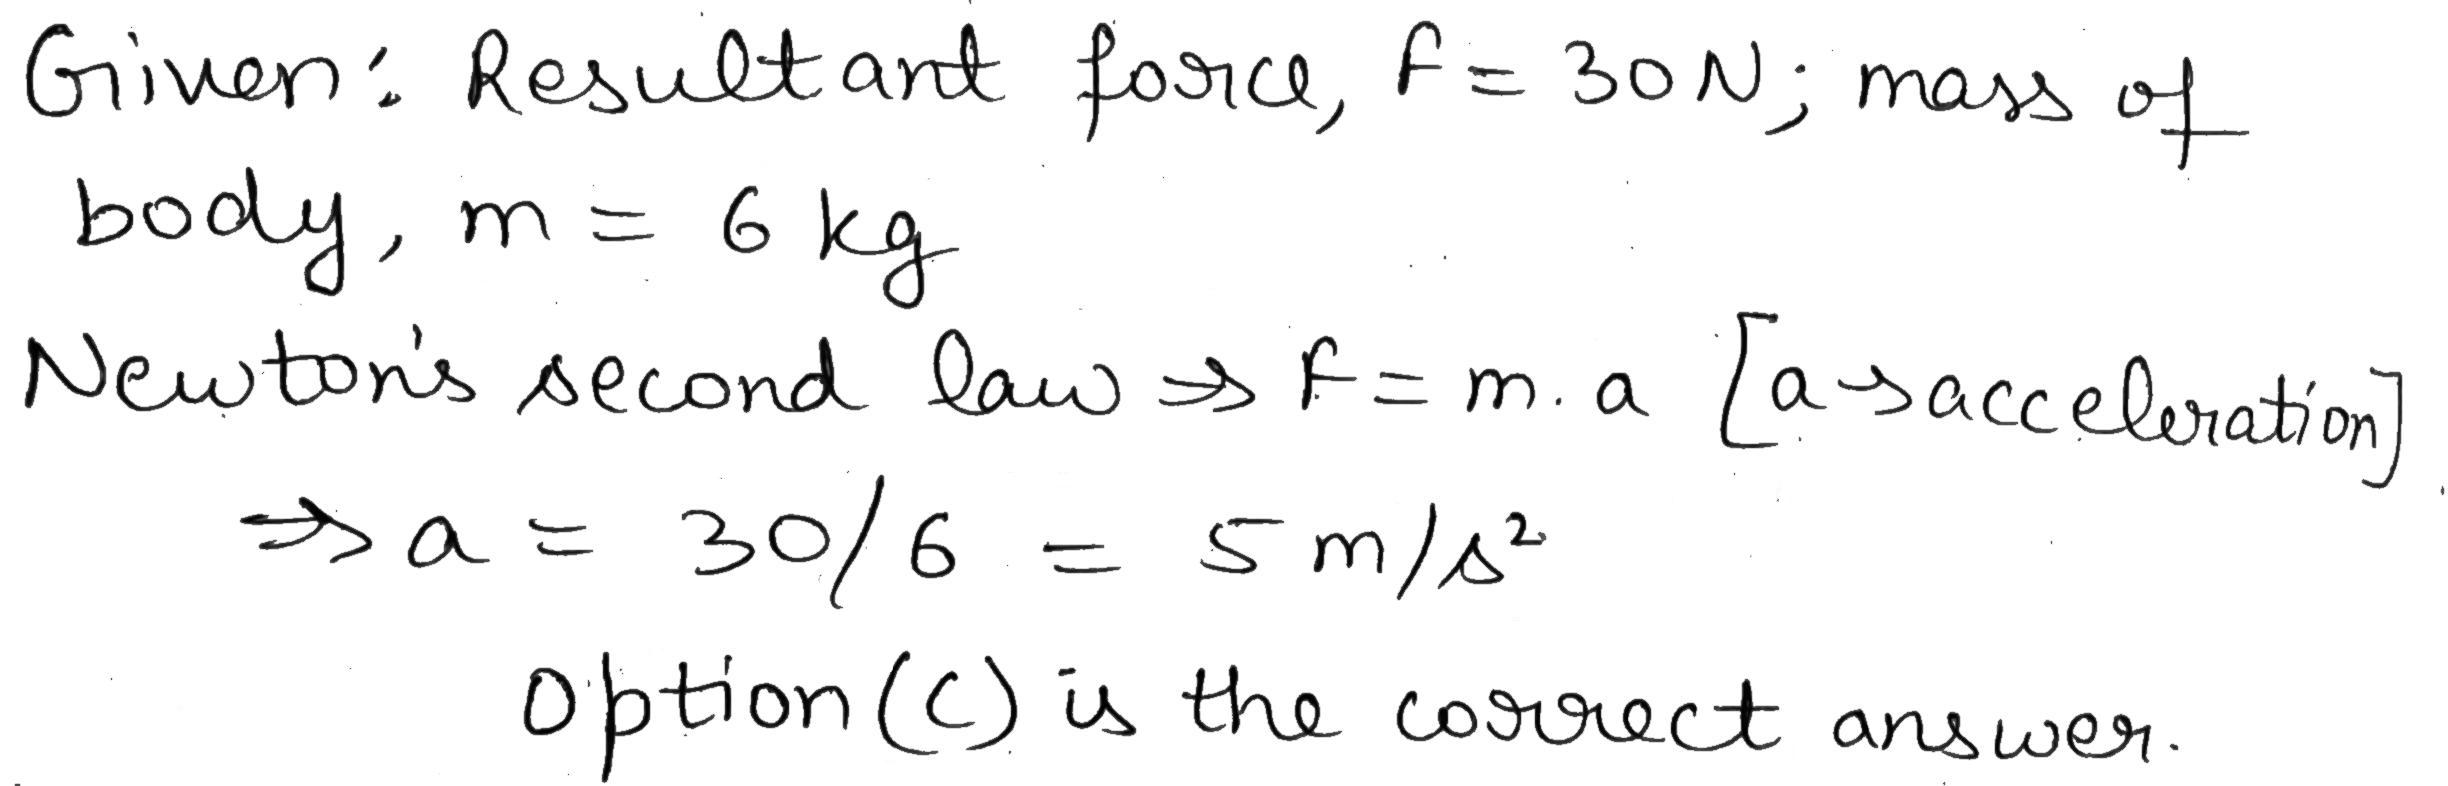 Given: Resultant force, F = 30N; mass of
body, m = 6 kg
Newton's second law ⇒ F = m.a [a→acceleration]
⇒ a = 30/6 = 5 m/s²
Option (C) is the correct answer.